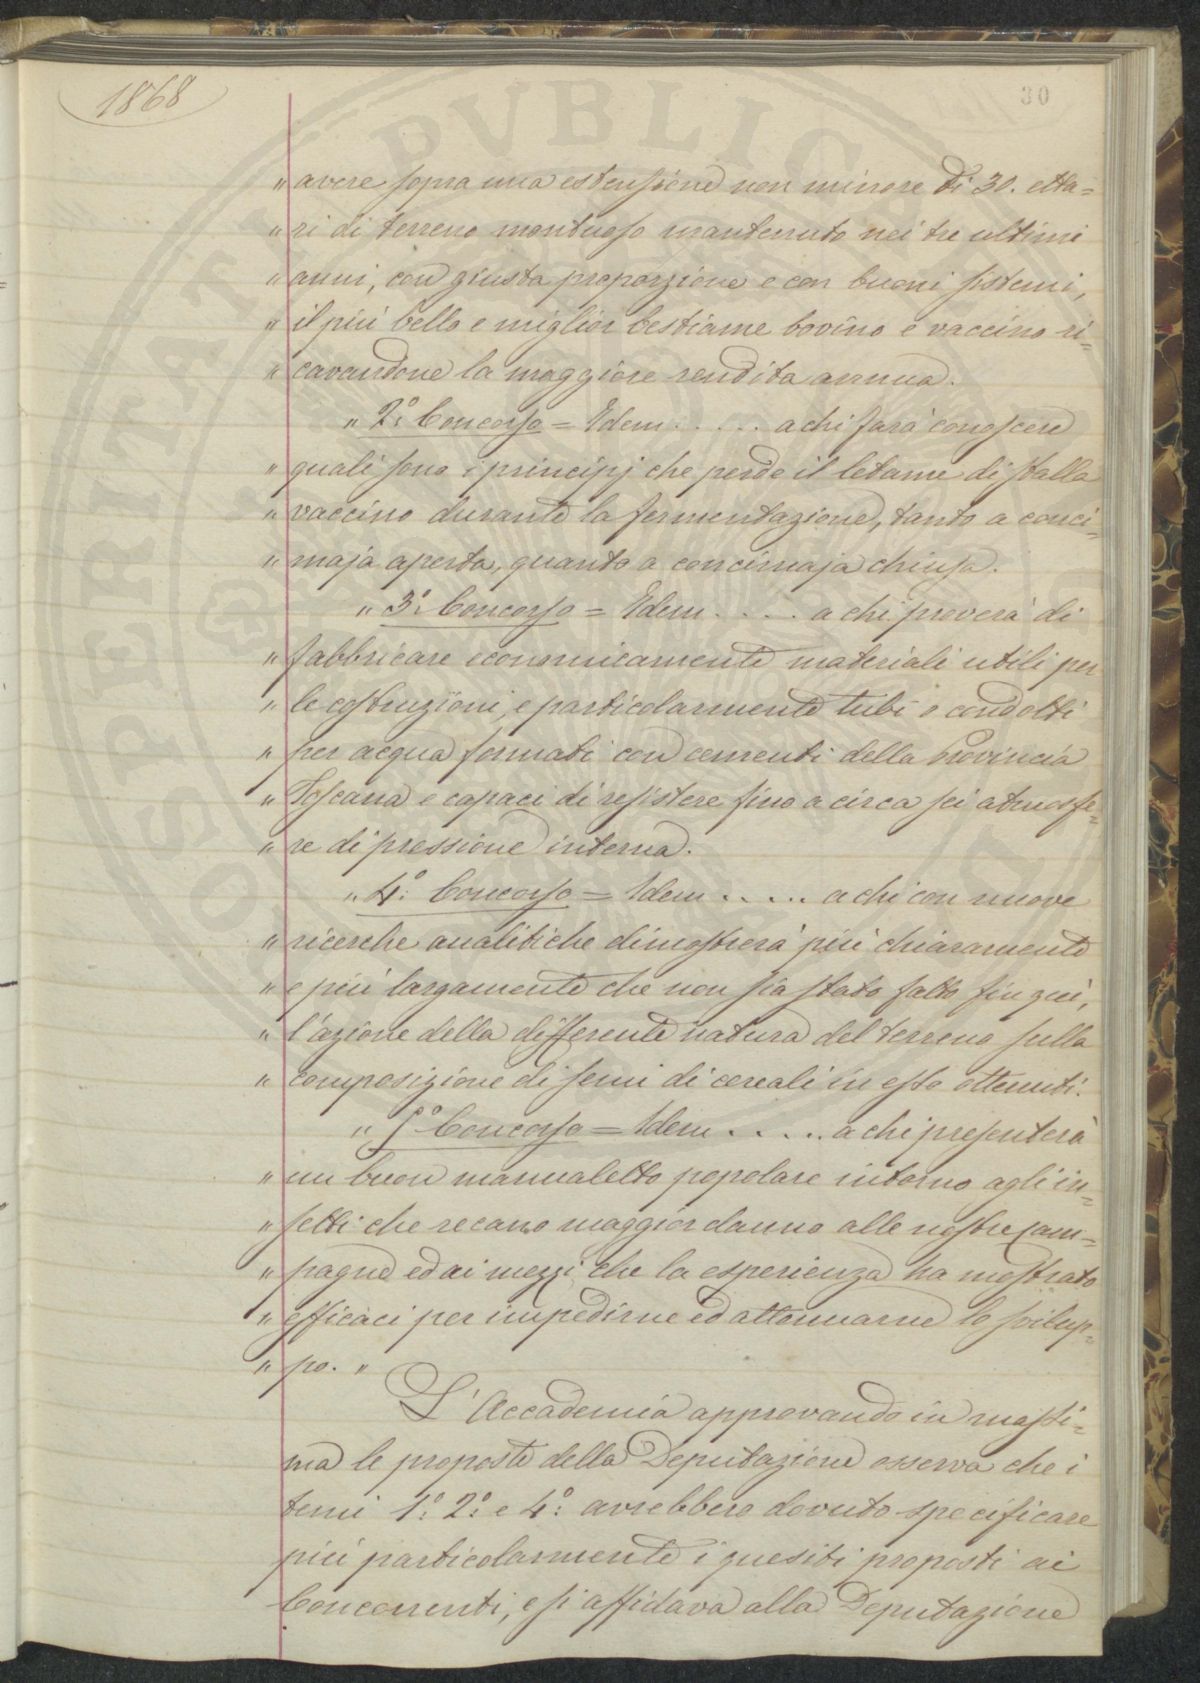 1868
30
" avere sopra una estensione non minore di 30. etta=
" ri di terreno montuoso mantenuto nei tre ultimi
" anni, con giusta proporzione e con buoni sistemi,
" il più bello e miglior bestiame bovino e vaccino ri=
" cavandone la maggiore rendita annua.
" 2°: Concorso = Idem ..... a chi farà conoscere
" quali sono i principj che perde il letame di stalla
" vaccino durante la fermentazione, tanto a conci=
" maja aperta, quanto a concimaja chiusa.
" 3°: Concorso = Idem .... a chi proverà di
" fabbricare economicamente materiali utili per
" le costruzioni, e particolarmente tubi o condotti
" per acqua formati con cementi della Provincia
" Toscana e capaci di resistere fino a circa sei atmosfe=
" re di pressione interna.
" 4°: Concorso = Idem ..... a chi con nuove
" ricerche analitiche dimostrerà più chiaramente
" e più largamente che non sia stato fatto fin quì,
" l'azione della differente natura del terreno sulla
" composizione di semi di cereali in esso ottenuti.
" 5° Concorso = Idem ..... a chi presenterà
" un buon manualetto popolare intorno agli in=
" setti che recano maggior danno alle nostre cam=
" pagne ed ai mezzi che la esperienza ha mostrato
" efficaci per impedirne ed attenuarne lo svilup=
" po. "
L'Accademia approvando in massi=
ma le proposte della Deputazione osserva che i
temi 1°: 2°: e 4°: avrebbero dovuto specificare
più particolarmente i quesiti proposti ai
Concorrenti, e si affidava alla Deputazione
PVBLICAE
PROSPERITATI